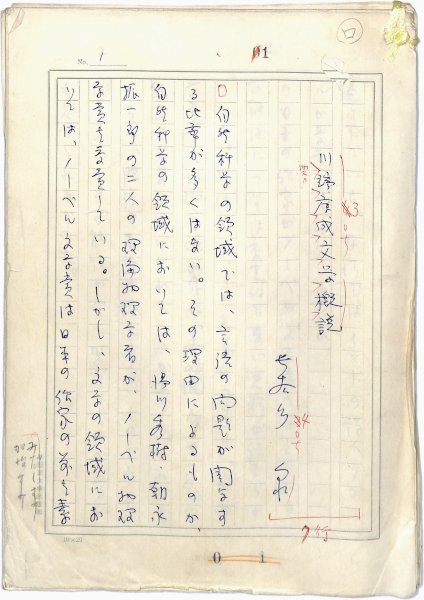 No. 1
01
ロ
川端康成文学概説
長谷川 泉
7行
○自然科学の領域では、言語の問題が関与す
る比率が多くはない。その理由によるものか、
自然科学の領域においては、湯川秀樹・朝永
振一郎の二人の理論物理学者が、ノーベル物理
学賞を受賞している。しかし、文学の領域にお
いては、ノーベル文学賞は日本の作家の前を素
10×20
0 1